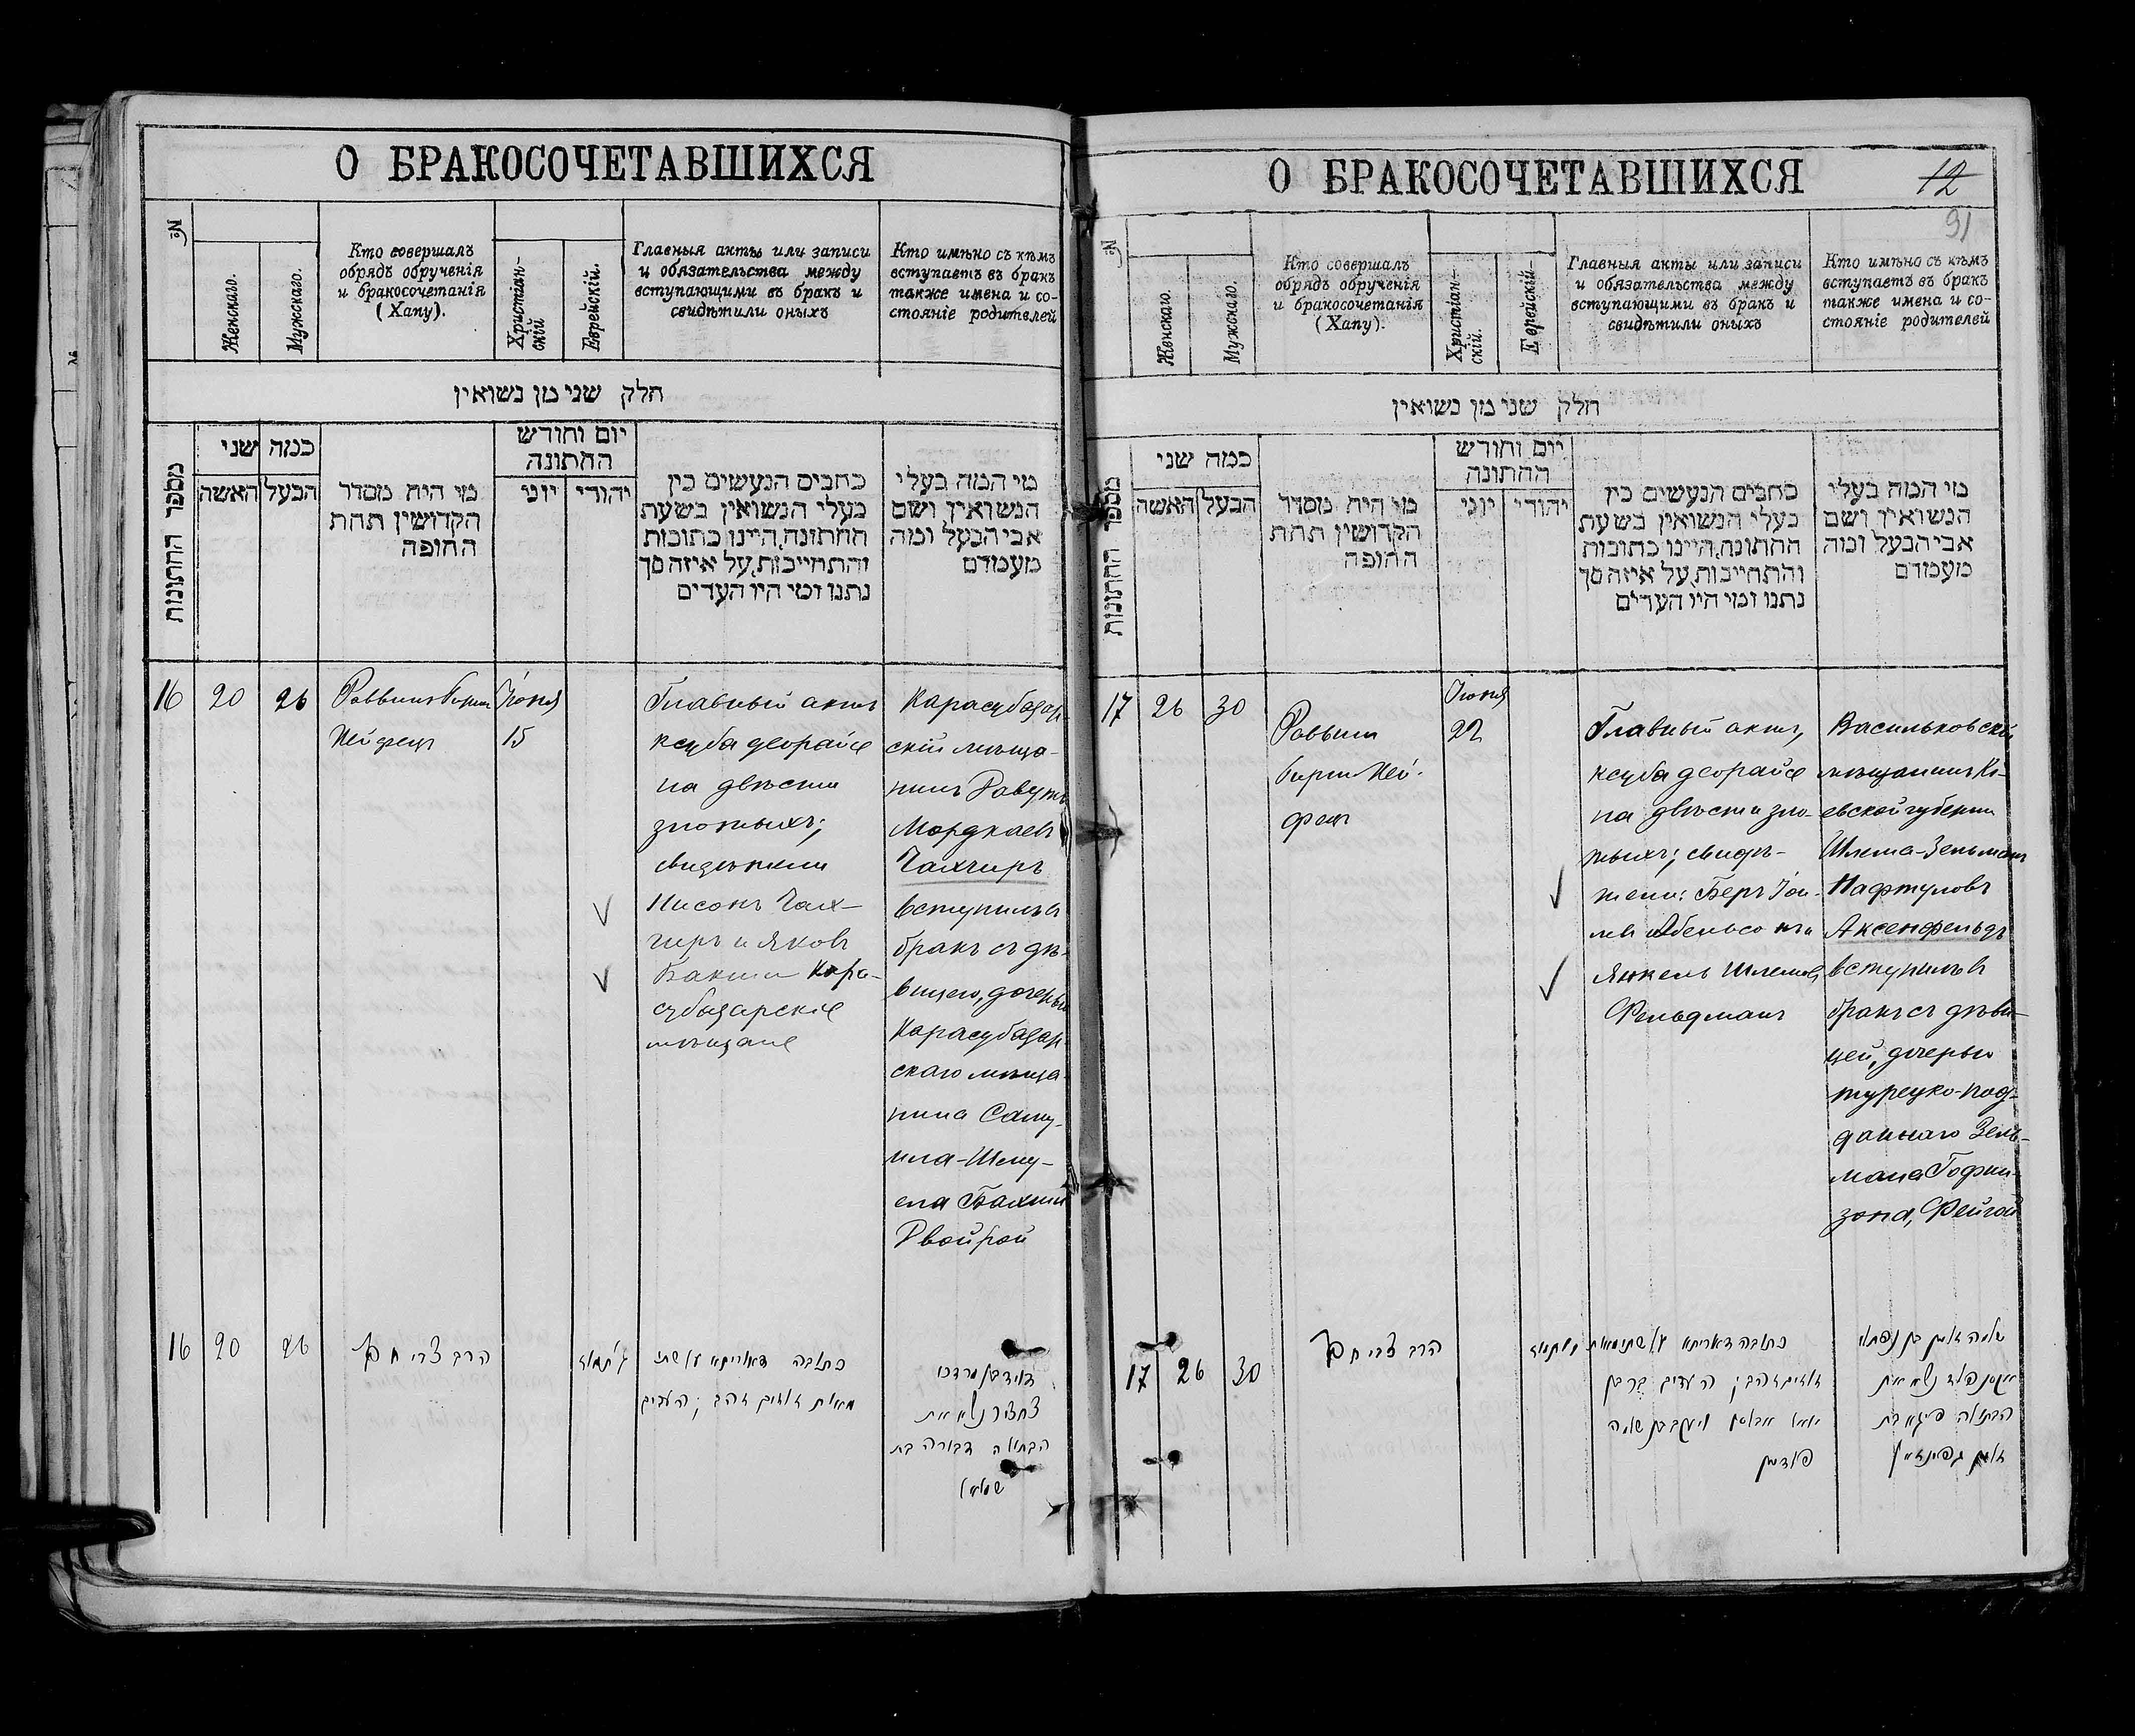 О БРАКОСОЧЕТАВШИХСЯ
№
Женскаго.
Мужскаго.
Кто совершалъ
обрядъ обрученія
и бракосочетанія
(Хапу).
Христіан-
скій
Еврейскій.
Главныя акты или записи
и обязательства между
вступающими въ бракъ и
свидѣтили оныхъ
Кто имѣно съ кѣмъ
вступаетъ въ бракъ
также имена и со-
стояніе родителей
חלק שני מן נשואין
מספר החתונות
כמה שני
האשה
הבעל
מי היה מסדר
הקדושין תחת
החופה
יום וחודש
החתונה
יוני
יהודי
כתבים הנעשים בין
בעלי הנשואין בשעת
החתונה, היינו כתובות
והתחייבות, על איזה סך
נתנו ומי היו העדים
מי המה בעלי
הנשואין ושם
אבי הבעל ומה
מעמדם
16
20
26
Раввинъ
Іюня
15
Главный актъ
ксуба деорайсе
на двѣсти
злотыхъ;
свидѣтели
Нисонъ Чах-
чиръ и Яковъ
Бакши Кара-
субазарскіе
мѣщане
Карасубазар-
скій мѣща-
нинъ
Мордхаевъ
Чахчиръ
вступилъ въ
бракъ съ дѣ-
вицею, дочерью
Карасубазар-
скаго мѣща-
нина Саму-
ила-Шму-
ела Бахши
Двойрой
16
20
26
הרב צבי
כתובה דאוריתא על שתי
מאות זהובים זהב; העדים
דוד בן מרדכי
נשא את
הבתולה דבורה בת
שמואל
О БРАКОСОЧЕТАВШИХСЯ
12
91
№
Женскаго.
Мужскаго.
Кто совершалъ
обрядъ обрученія
и бракосочетанія
(Хапу).
Христіан-
скій.
Е ерейскій-
Главныя акты или записи
и обязательства между
вступающими въ бракъ и
свидѣтили оныхъ
Кто имѣно съ кѣмъ
вступаетъ въ бракъ
также имена и со-
стояніе родителей
חלק שני מן נשואין
מספר החתונות
כמה שני
האשה
הבעל
מי היה מסדר
הקדושין תחת
החופה
יום וחודש
החתונה
יוני
יהודי
כתבים הנעשים בין
בעלי הנשואין בשעת
החתונה, היינו כתובות
והתחייבות, על איזה סך
נתנו ומי היו העדים
מי המה בעלי
הנשואין ושם
אבי הבעל ומה
מעמדם
17
26
30
Раввинъ
Іюня
22
Главный актъ,
ксуба деорайсе
на двѣсти зло-
тыхъ; свидѣ-
тели: Беръ
Янкель Шлемовъ
Фельдманъ
Васильковскій
мѣщанинъ Кі-
евской губерніи
Шлема-Зельманъ
Нафтуловъ
Аксенфельдъ
вступилъ въ
бракъ съ дѣви-
цей, дочерью
турецко-под-
даннаго Зель-
мана Гофин-
зона, Фейгой
17
26
30
הרב צבי
כתובה דאוריתא על שתי מאות
העדים בר בן
ויעקב בן שלמה
פעלדמן
שלמה זלמן בן נפתלי
נשא את
הבתולה פיגא בת
זלמן